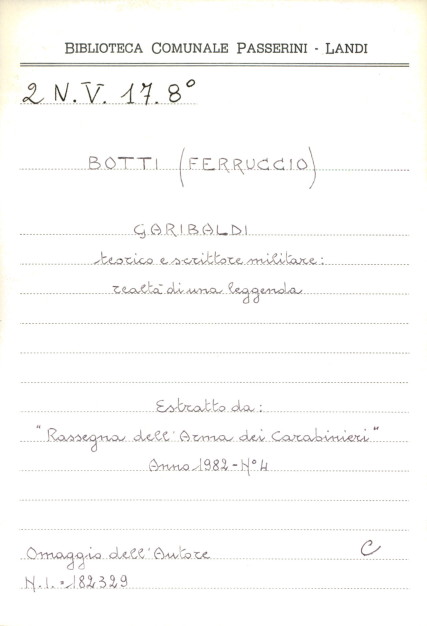 BIBLIOTECA COMUNALE PASSERINI - LANDI
2 N.V. 17. 8°
BOTTI (FERRUCCIO)
GARIBALDI
teorico e scrittore militare:
realtà di una leggenda
Estratto da:
"Rassegna dell'Arma dei Carabinieri"
Anno 1982 - N° 4
Omaggio dell'Autore C
N.I. = 182329